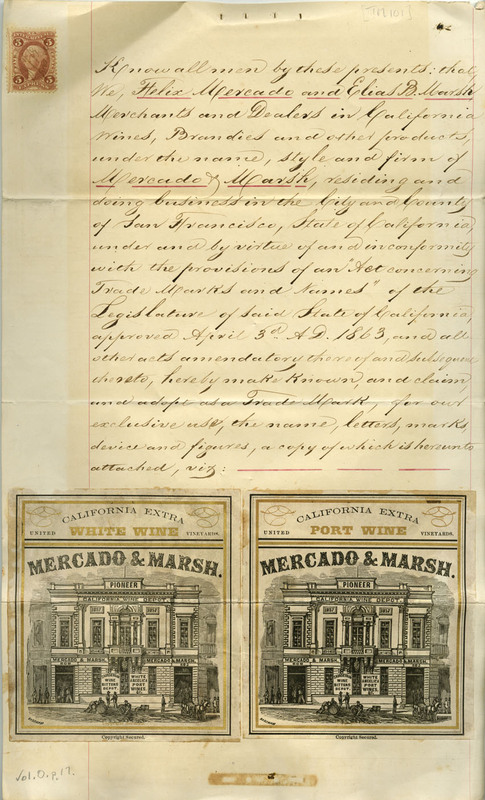 [TM 101]
5 5
5 5
EXPRESS
Know all men by these presents: that
We, Felix Mercado and Elias B. Marsh
Merchants and Dealers in California
Wines, Brandies and other products,
under the name, style and firm of
Mercado & Marsh, residing and
doing business in the City and County
of San Francisco, State of California,
under and by virtue of and in conformity
with the provisions of an "Act concerning
Trade Marks and Names" of the
Legislature of said State of California,
approved April 3d. A.D. 1863, and all
other acts amendatory thereof and subsequent
thereto, hereby make known, and claim
and adopt as a Trade Mark, for our
exclusive use, the name, letters, marks,
device and figures, a copy of which is hereunto
attached, viz:
CALIFORNIA EXTRA
UNITED WHITE WINE VINEYARDS.
MERCADO & MARSH.
PIONEER
CALIFORNIA WINE DEPOT.
MERCADO & MARSH. MERCADO & MARSH.
WINE
BITTERS
DEPOT.
WHITE
ANGELICA
AND PORT
WINES.
Copyright Secured.
CALIFORNIA EXTRA
UNITED PORT WINE VINEYARDS.
MERCADO & MARSH.
PIONEER
CALIFORNIA WINE DEPOT.
MERCADO & MARSH. MERCADO & MARSH.
WINE
BITTERS
DEPOT.
WHITE
ANGELICA
AND PORT
WINES.
Copyright Secured.
Vol. O. p. 17.